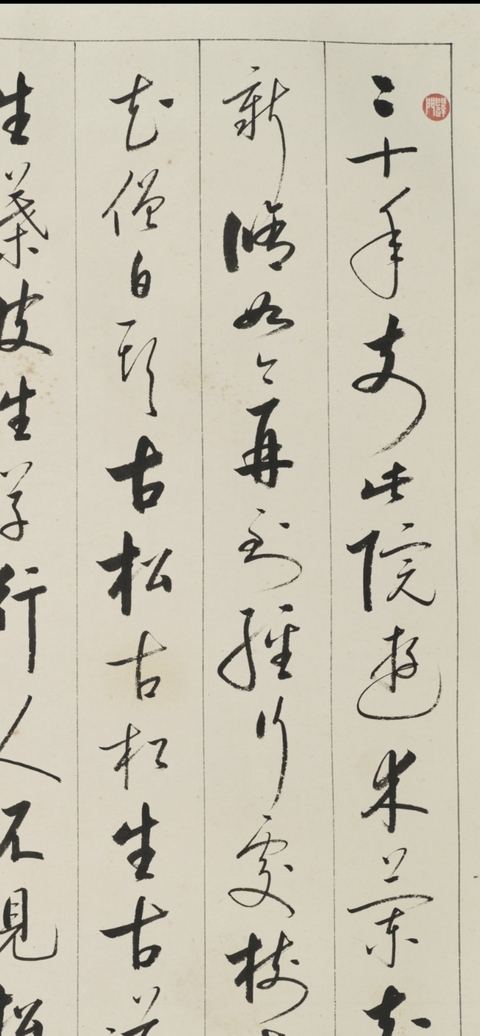 二十年前此院遊木蘭花
新脩如今再到經行處樹
花僧白頭古松古松生古
生葉皮生草行人不見松